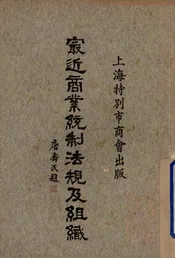 上海特別市商會出版
冣近商業統制法規及組織
唐壽民題